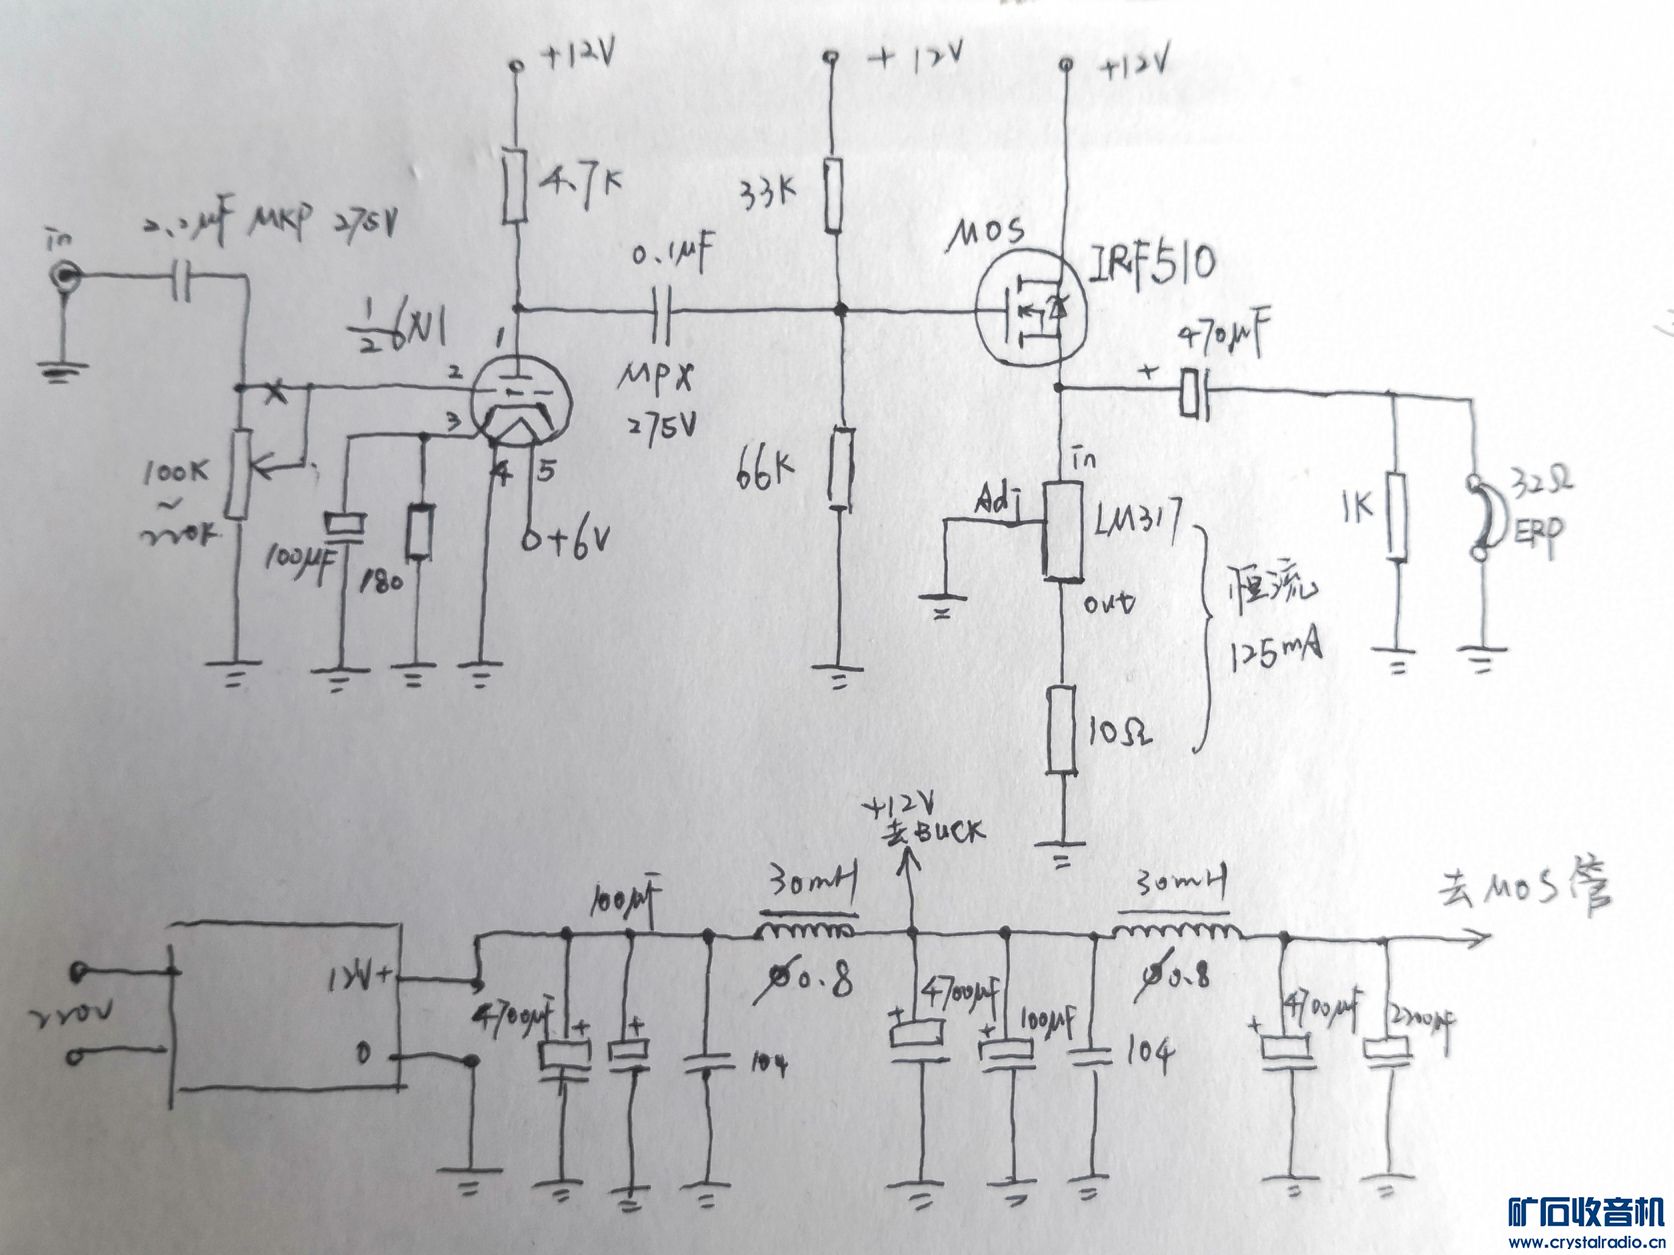 +12V
+12V
+12V
4.7K
33K
in
2.2μF MKP 275V
MOS
IRF510
0.1μF
1/2 6N1
1
470μF
+
2
×
MPX
275V
3
in
100K
~
220K
4
5
66K
Adj
LM317
1K
32Ω
ERP
100μF
180
+6V
out
恒流
125mA
10Ω
+12V
去BUCK
100μF
30mH
30mH
去MOS管
12V+
220V
0
4700μF
+
+
104
φ0.8
4700μF
+
100μF
+
104
φ0.8
4700μF
+
2200μF
矿石收音机
www.crystalradio.cn